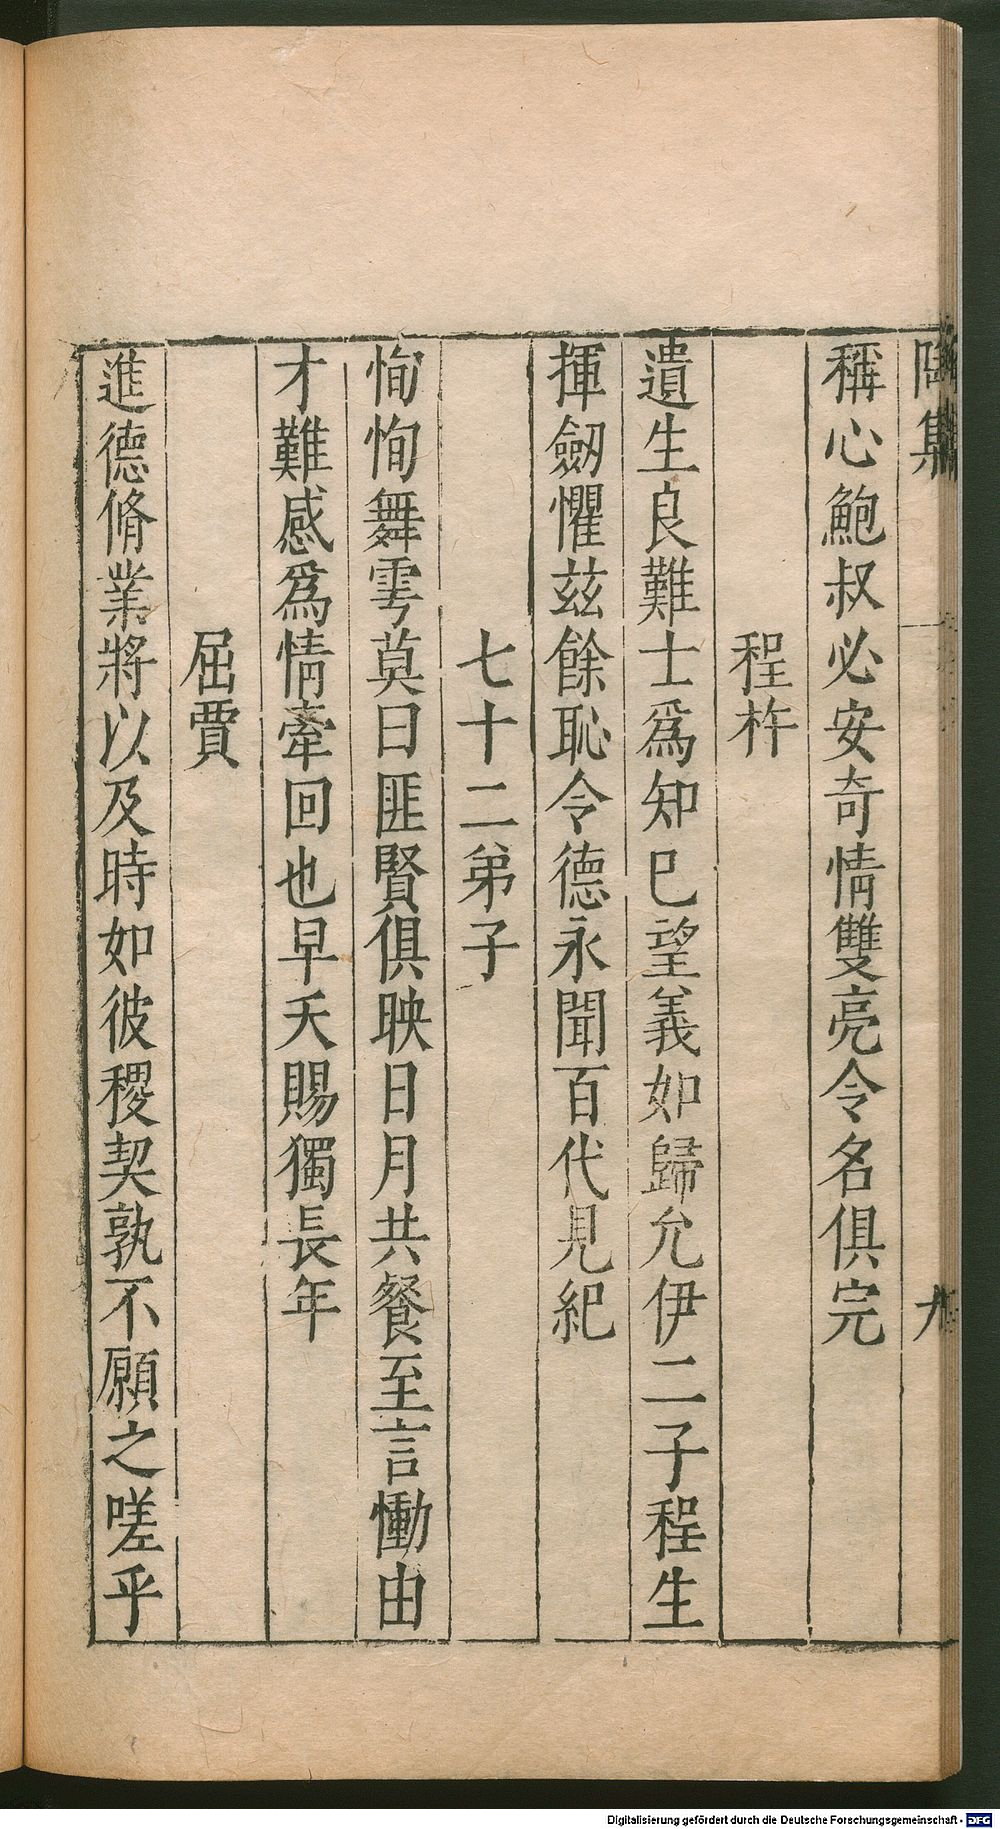 陶集
九
稱心鮑叔必安奇情雙亮令名俱完
程杵
遺生良難士爲知巳望義如歸允伊二子程生
揮劒懼兹餘恥令德永聞百代見紀
七十二弟子
恂恂舞雩莫曰匪賢俱映日月共餐至言慟由
才難感爲情牽回也早夭賜獨長年
屈賈
進德脩業將以及時如彼稷契孰不願之嗟乎
Digitalisierung gefördert durch die Deutsche Forschungsgemeinschaft - DFG